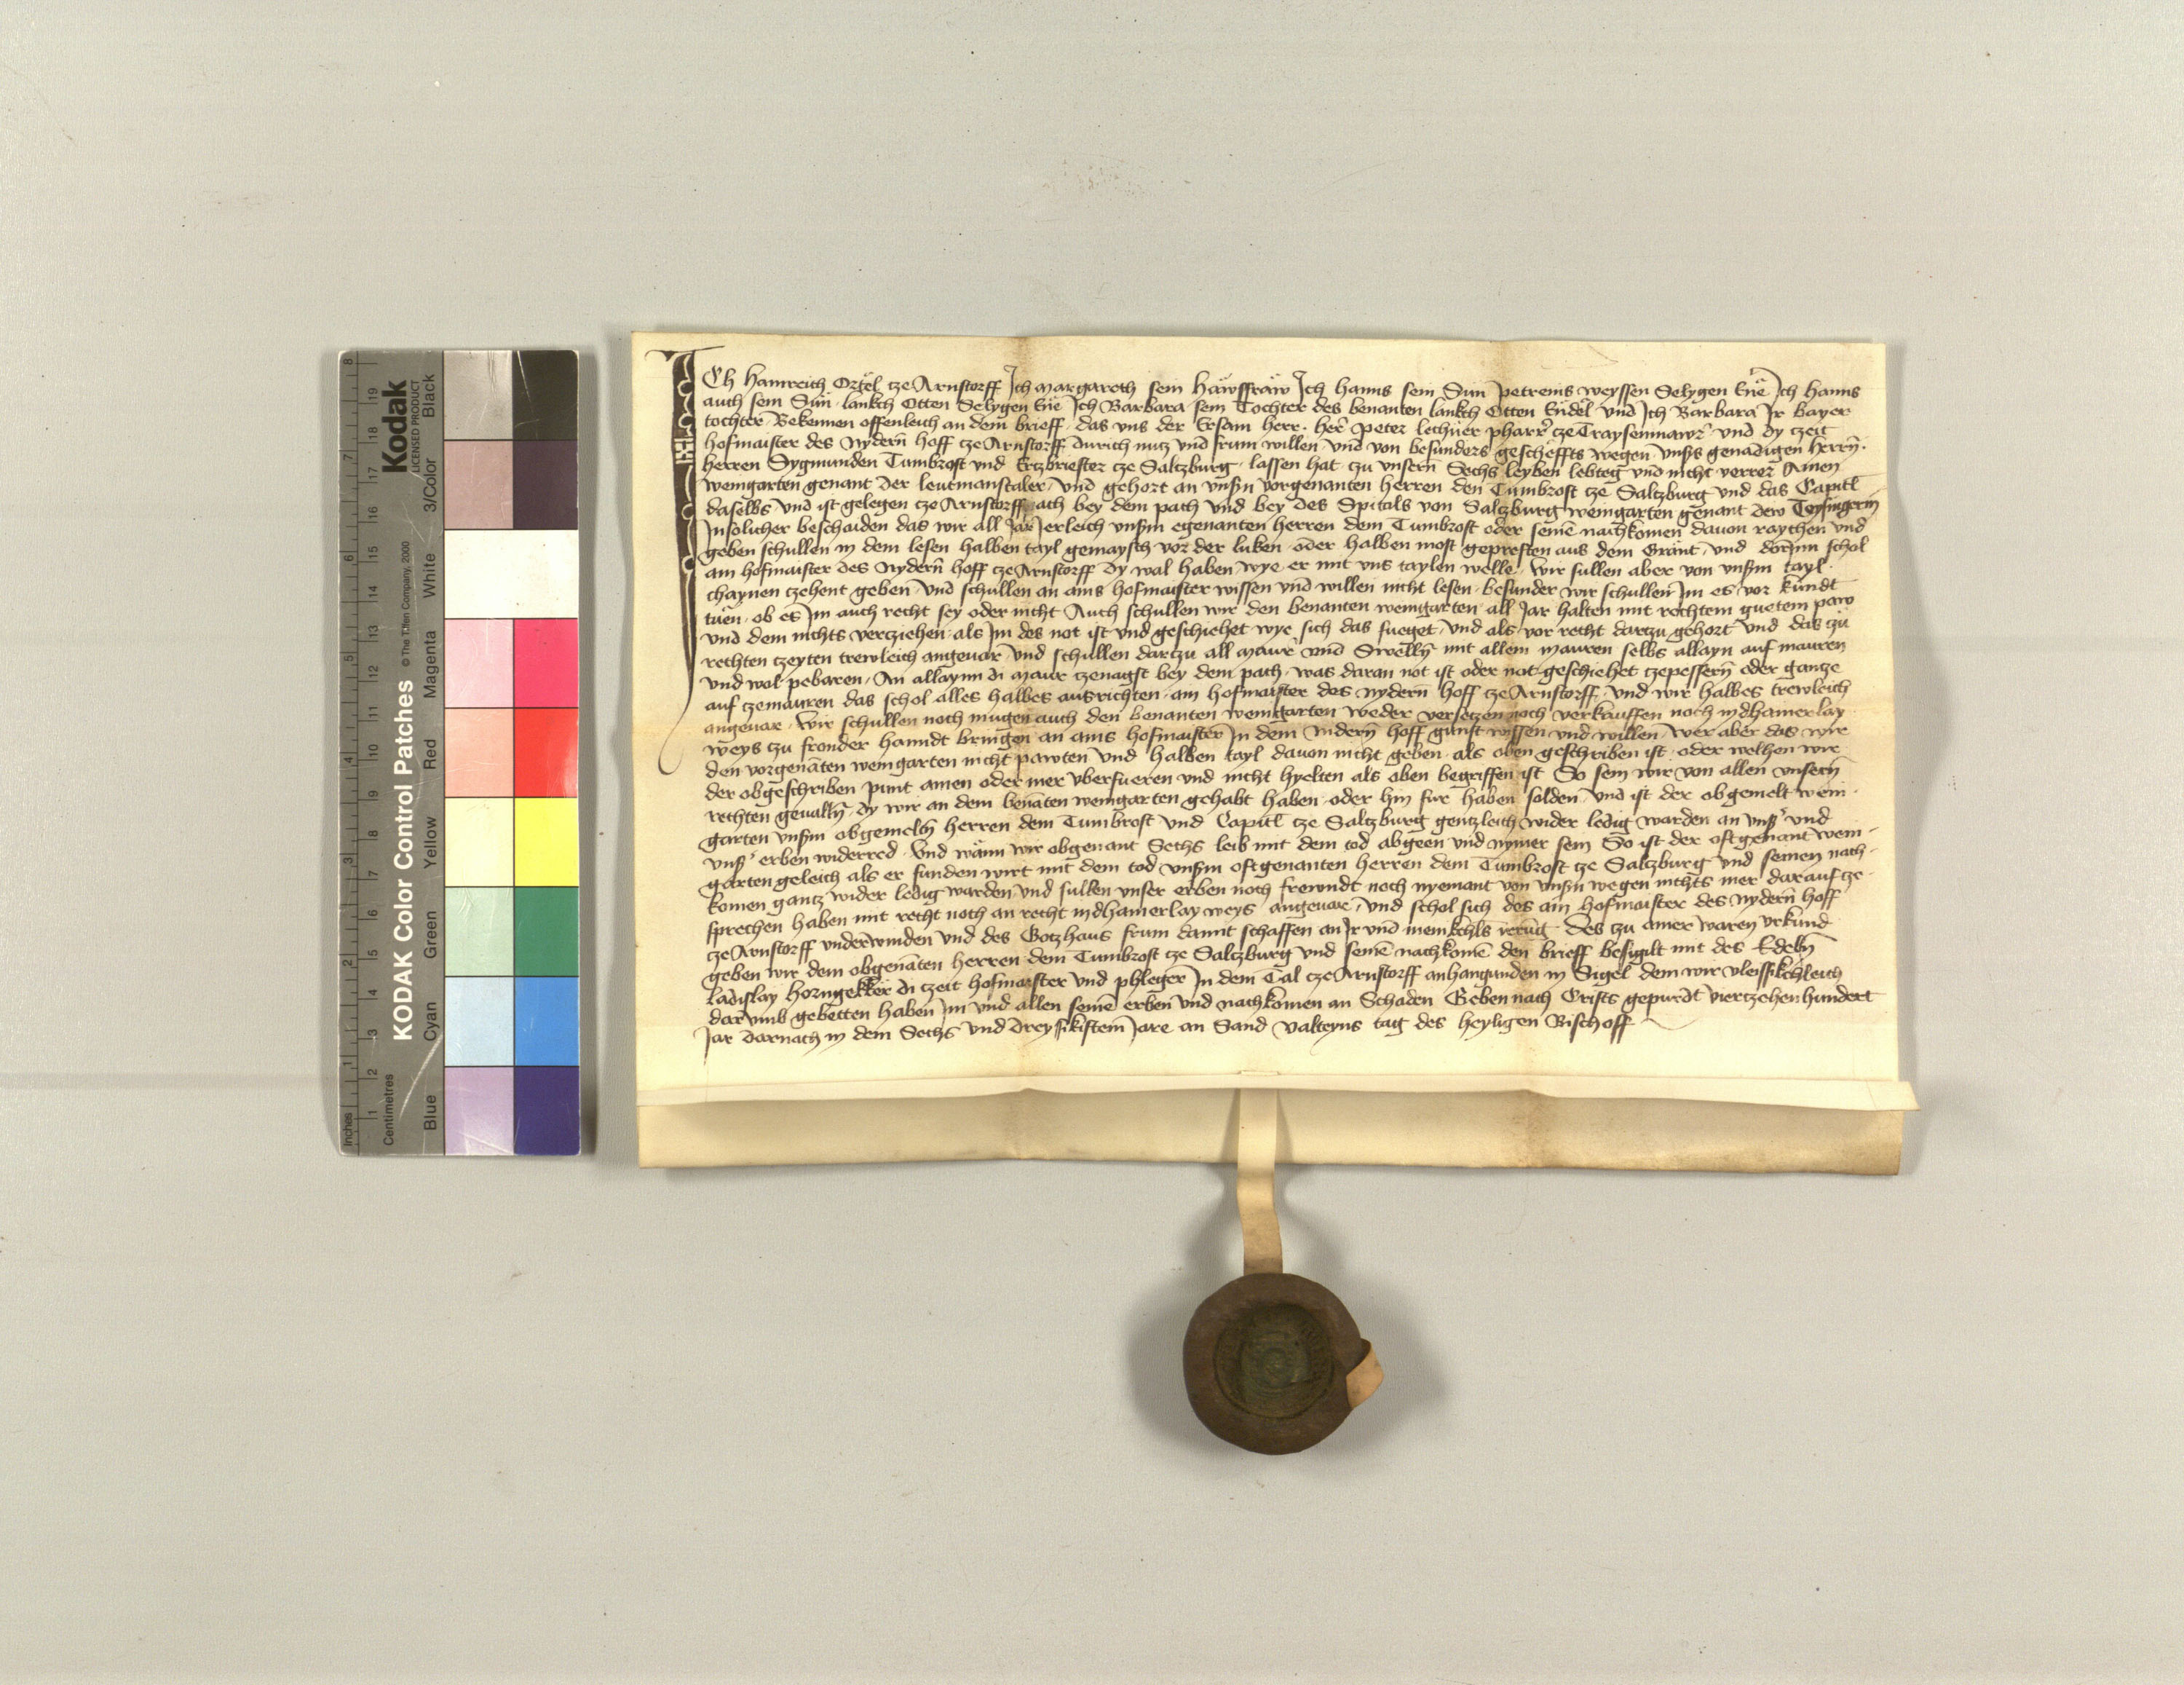 ICh Hainreich Ortel cze Arnstorff Ich Margareth sein Hawssfraw Ich Hanns sein Sun Petreins Weyssen Selygen Ene Ich Hanns
auch sein Sun lankch Otten Selygen Ene Ich Barbara sein Tochter des benanten lankch Otten Endel und Ich Barbara Ir bayer
tochter Bekennen offenleich an dem brieff das vns der Ersam herr her Peter lechner pharrer cze Traysenmawr und dy czeit
hofmaister des Nydern hoff cze Arnstorff durich nucz und frum willen und von besunders gescheffts wegen vnsers genadigen herrn
herren Sygmunden Tumbrost und Erczbriester cze Salczburg lassen hat czu vnsern Sechs leyben lebteg und nicht verrer Ainen
weingarten genant der leutmanstaler und gehort an vnsern vorgenanten herren den Tumbrost cze Salczburg und das Capitl
daselbs und ist gelegen cze Arnstorff ach bey dem pach und bey des Spitals von Salczburg weingarten genant dew Teysingerin
In solicher beschaiden das wir all Jar Jerleich vnserm egenanten herren dem Tumbrost oder seinen nachkomen dauon raychen und
geben schullen in dem lesen halben tayl gemaysch vor der luken oder halben most gepressten aus dem Grant und dorinn schol
ain hofmaister des Nydern hoff cze Arnstorff dy wal haben wye er mit vns taylen welle wir sullen aber von vnserm tayl
chaynen czehent geben und schullen an ains hofmaister wissen und willen nicht lesen besunder wir schullen Im es vor kundt
tuen ob es Im auch recht sey oder nicht Auch schullen wir den benanten weingarten all Jar halten mit rechtem guetem paw
und dem nichts vercziehen als Im des not ist und geschiehet wye sich das fueget und als vor recht darczu gehort und das czu
rechten czeyten trewleich angeuar und schullen darczu all Mawr und Swelln mit allem mauren selbs allayn auf mauren
und wol pebaren An allaynn di Mawr czenagst bey dem pach was daran not ist oder not geschiehet czepessern oder gancze
auf czemauren das schol alles halbes ausrichten ain hofmaister des Nydern hoff cze Arnstorff und wir halbes trewleich
angeuar wir schullen noch mugen auch den benanten weingarten weder verseczen noch verkauffen noch indhainerlay
weys czu fronder hanndt bringen an ains hofmaister In dem Nidern hoff gunst wissen und willen wer aber das wir
den vorgenanten weingarten nicht pawten und halben tayl dauon nicht geben als oben geschriben ist oder welhen wir
der obgeschriben punt ainen oder mer vberfueren und nicht hyelten als oben begriffen ist So sein wir von allen vnsern
rechten geualln dy wir an dem benanten weingarten gehabt haben oder hin fur haben solden und ist der obgemelt wein
garten vnserm obgemelten herren dem Tumbrost und Capitl cze Salczburg genczleich wider ledig warden an vnser und
vnser erben widerred Und wann wir obgenant Sechs leib mit dem tod abgeen und nymer sein So ist der oftgenant wein
garten geleich als er funden wirt mit dem tod vnserm oftgenanten herren dem Tumbrost cze Salczburg und seinen nach
komen gancz wider ledig warden und sullen vnser erben noch frewndt noch nyemant von vnsern wegen nichts mer darauf cze
sprechen haben mit recht noch an recht indhainerlay weys angeuar und schol sich des ain hofmaister des Nydern hoff
cze Arnstorff vnderwinden und des Goczhaus frum damit schaffen an Ir und meinkchls irrung Des czu ainer waren vrkund
geben wir dem obgenanten herren dem Tumbrost cze Salczburg und seinen nachkomen den brieff besigilt mit des Edeln
ladislay Horngekker di czeit hofmaister und phleger In dem Tal cze Arnstorff anhangunden in Sigel dem wir vleissikchleich
dar vmb gebetten haben Im und allen seinen erben und nachkomen an Schaden Geben nach Crists gepurdt vierczehen hundert
Jar darnach in dem Sechs und dreyssikistem Jare an Sand valteyns tag des heyligen Bischoff
KODAK Color Control Patches © The Tiffen Company, 2000
Kodak
LICENSED PRODUCT
Blue Cyan Green Yellow Red Magenta White 3/Color Black
Inches 1 2 3 4 5 6 7 8
Centimetres 1 2 3 4 5 6 7 8 9 10 11 12 13 14 15 16 17 18 19